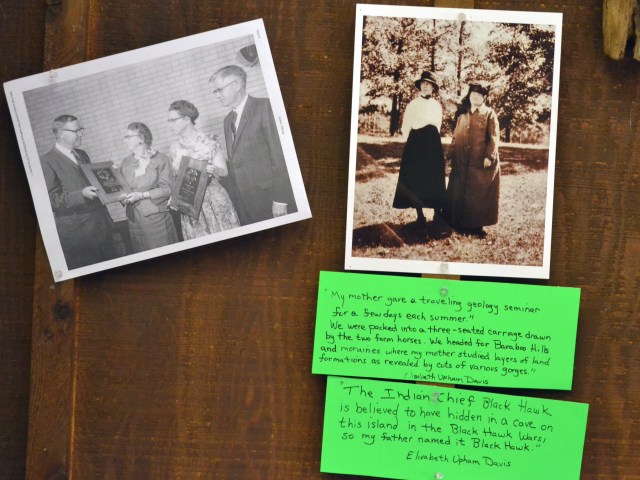 "My mother gave a traveling geology seminar
for a few days each summer."
We were packed into a three-seated carriage drawn
by the two farm horses. We headed for Baraboo Hills
and moraines where my mother studied layers of land
formations as revealed by cuts of various gorges."
Elizabeth Upham Davis
"The Indian Chief Black Hawk
is believed to have hidden in a cave on
this island in the Black Hawk Wars;
so my father named it Black Hawk."
Elizabeth Upham Davis